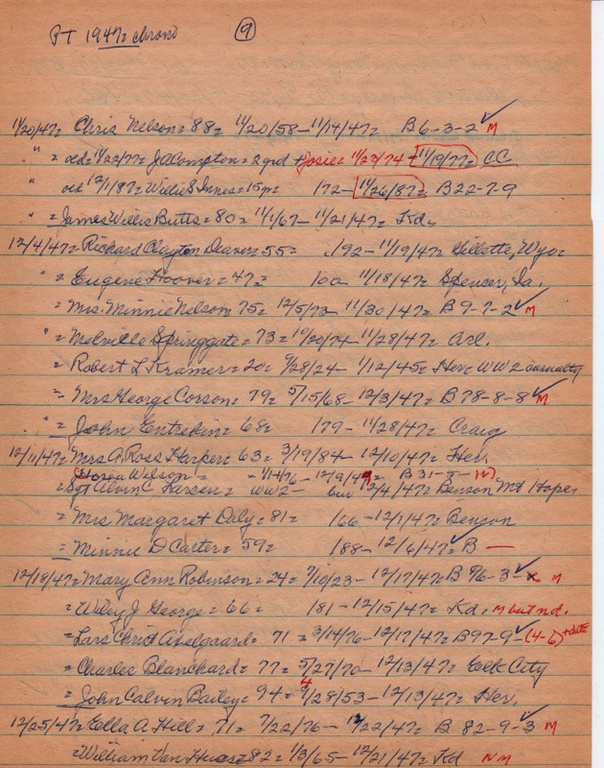 PT 1947= chrono ⑨
11/20/47= Chris Nelson= 88= 11/20/58-11/14/47= B6-3-2 ✓ M
" = old= 11/23/77= JACompton= 2grd + Josie= 11/23/74 - 11/19/77= CC
" old 12/1/87= Willie S Innes= 15m= 1872 - 11/26/87= B22-7-9
" = James Willis Butts= 80= 11/1/67-11/21/47= Kd.
12/4/47= Richard Clayton Deaver= 55= 192-11/19/47= Gillette, Wyo=
" = Eugene Hoover= 47= 100- 11/18/47= Spencer, Ia.
= Mrs. Minnie Nelson= 75= 12/5/73- 11/30/47= B9-7-2 ✓ M
" = Melville Springgate= 73= 10/20/74-11/28/47= Arl.
= Robert L Kramer= 20= 9/28/24- 1/12/45= Her= WW2 casualty
= Mrs George Corson= 79= 5/15/68-12/3/47= B78-8-8 ✓ M
" = John Entrekin= 68= 179-11/28/47= Craig
12/11/47= Mrs A. Ross Harper= 63= 3/19/84- 12/10/47= Her.
Wilson= - 1/14/76- 12/9/49= B31-
= Sgt Alvin C Larsen= WW2- bur 12/4/47= Benson Mt Hope=
= Mrs Margaret Daly= 81= 166-12/1/47= Benson
= Minnie D Carter= 59= 188-12/6/47= ✓ B —
12/18/47= Mary Ann Robinson= 24= 7/10/23-12/17/47= B 96-3- ✓ M
= Wiley J George= 66= 181-12/15/47= Kd. M but nd.
= Lars Christ Axelgaard= 71= 3/14/76-12/17/47= B97-9- ✓ (4-6)
= Charles Blanchard= 77= 5/27/70-12/13/47= Elk City
= John Calvin Bailey= 94= 4/28/53-12/13/47= Her.
12/25/47= Ella A Hill= 71= 7/22/76- 12/22/47= B 82-9-3 ✓ M
= William Van = 82= 1/3/65-12/21/47= Kd NM